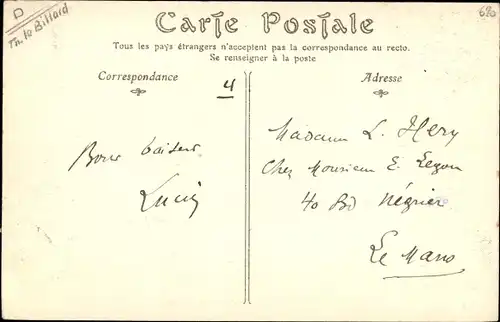 D
Th. le Billard
680
Carte Postale
Tous les pays étrangers n'acceptent pas la correspondance au recto.
Se renseigner à la poste
Correspondance
4
Bons baisers
Lucien
Adresse
Madame L. Hery
Chez Monsieur E. Legon
40 Bd Négrier
Le Mans